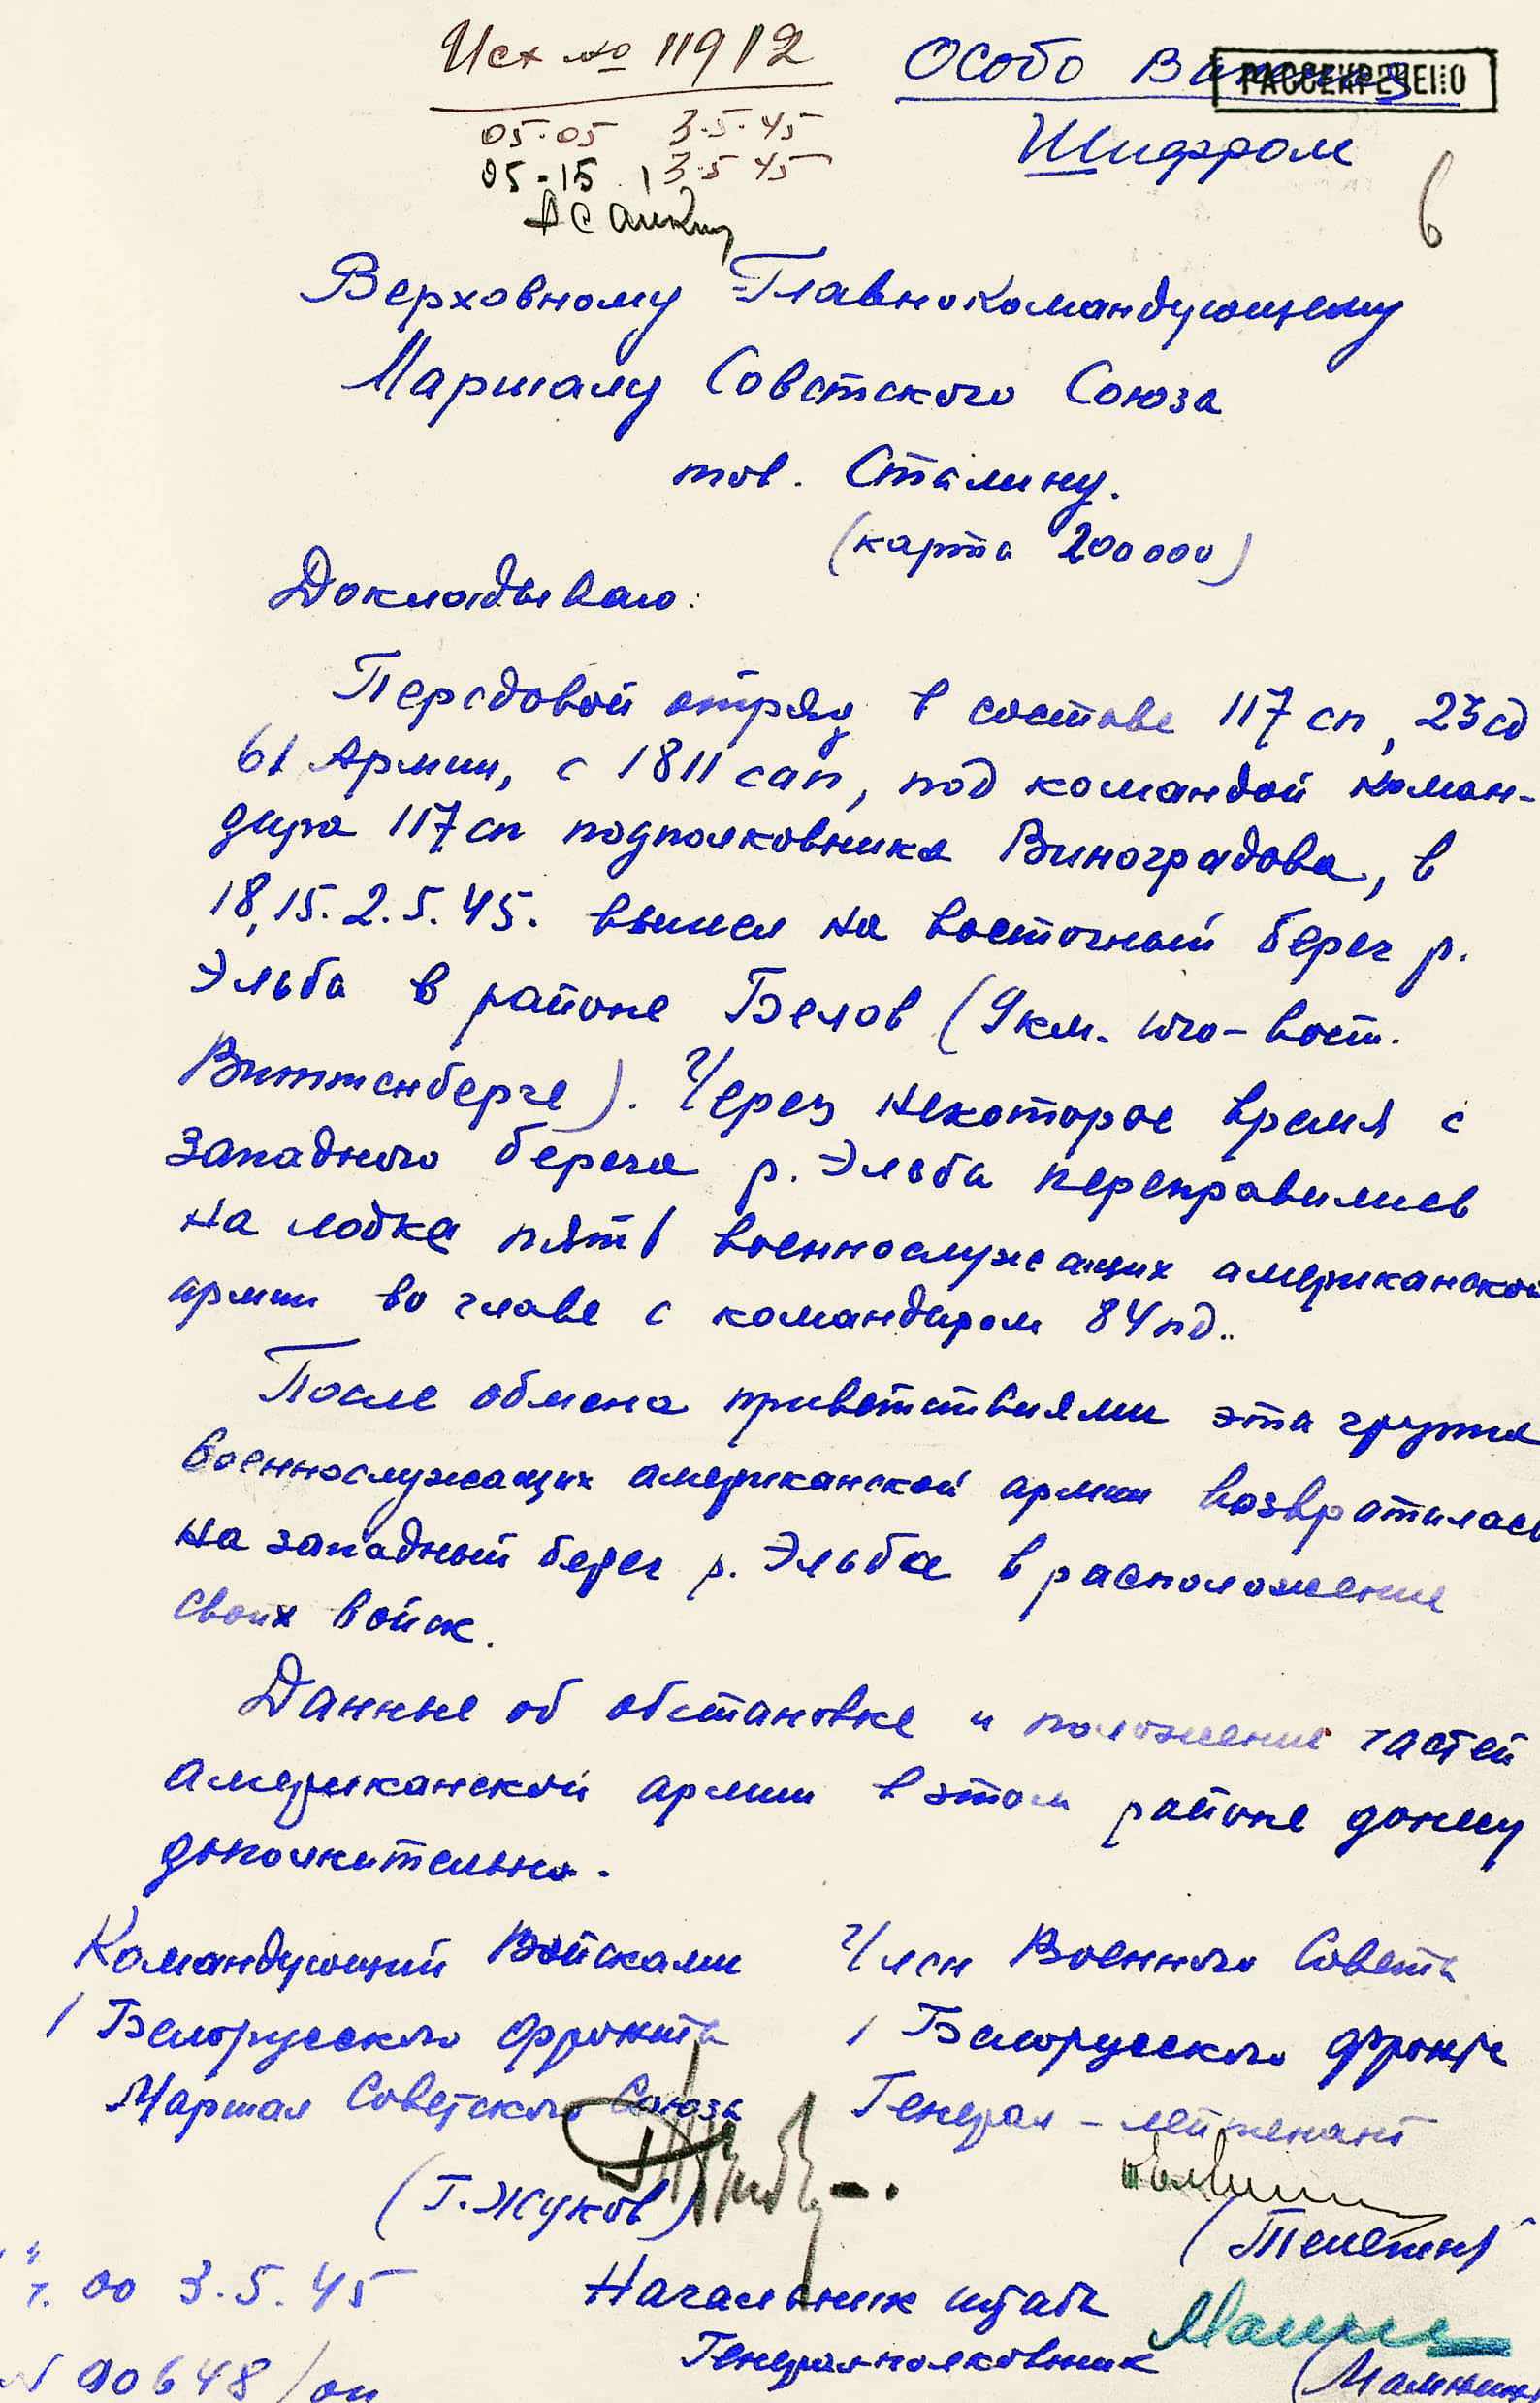 Исх № 11912
Особо Важная
РАССЕКРЕЧЕНО
Шифром
05-05 3.5.45
05-15 3.5.45
6
Верховному Главнокомандующему
Маршалу Советского Союза
тов. Сталину.
(карта 200000)
Докладываю:
Передовой отряд в составе 117 сп, 23 сд
61 Армии, с 1811 сап, под командой коман-
дира 117 сп подполковника Виноградова, в
18.15. 2.5.45. вышел на восточный берег р.
Эльба в районе Белов (9 км. юго-вост.
Виттенберге). Через некоторое время с
западного берега р. Эльба переправились
на лодке пять военнослужащих американской
армии во главе с командиром 84 пд..
После обмена приветствиями эта группа
военнослужащих американской армии возвратилась
на западный берег р. Эльба в расположение
своих войск.
Данные об обстановке и положении частей
американской армии в этом районе донесу
дополнительно.
Командующий Войсками
1 Белорусского фронта
Маршал Советского Союза
(Г. Жуков)
Член Военного Совета
1 Белорусского фронта
Генерал-лейтенант
(Телегин)
Начальник штаба
Генерал-полковник
(Малинин)
00 3.5.45
N 00648/оп